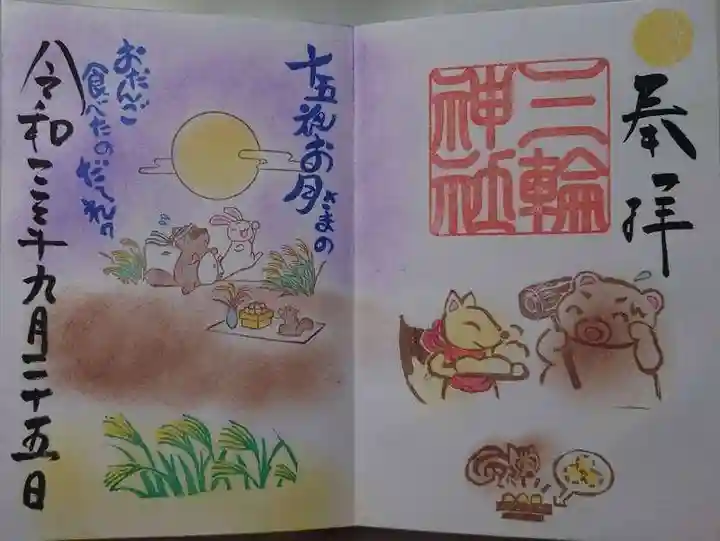 奉拝
三輪
神社
十五夜お月さまの
おだんご
食べたのだぁれ?
令和二年九月二十五日